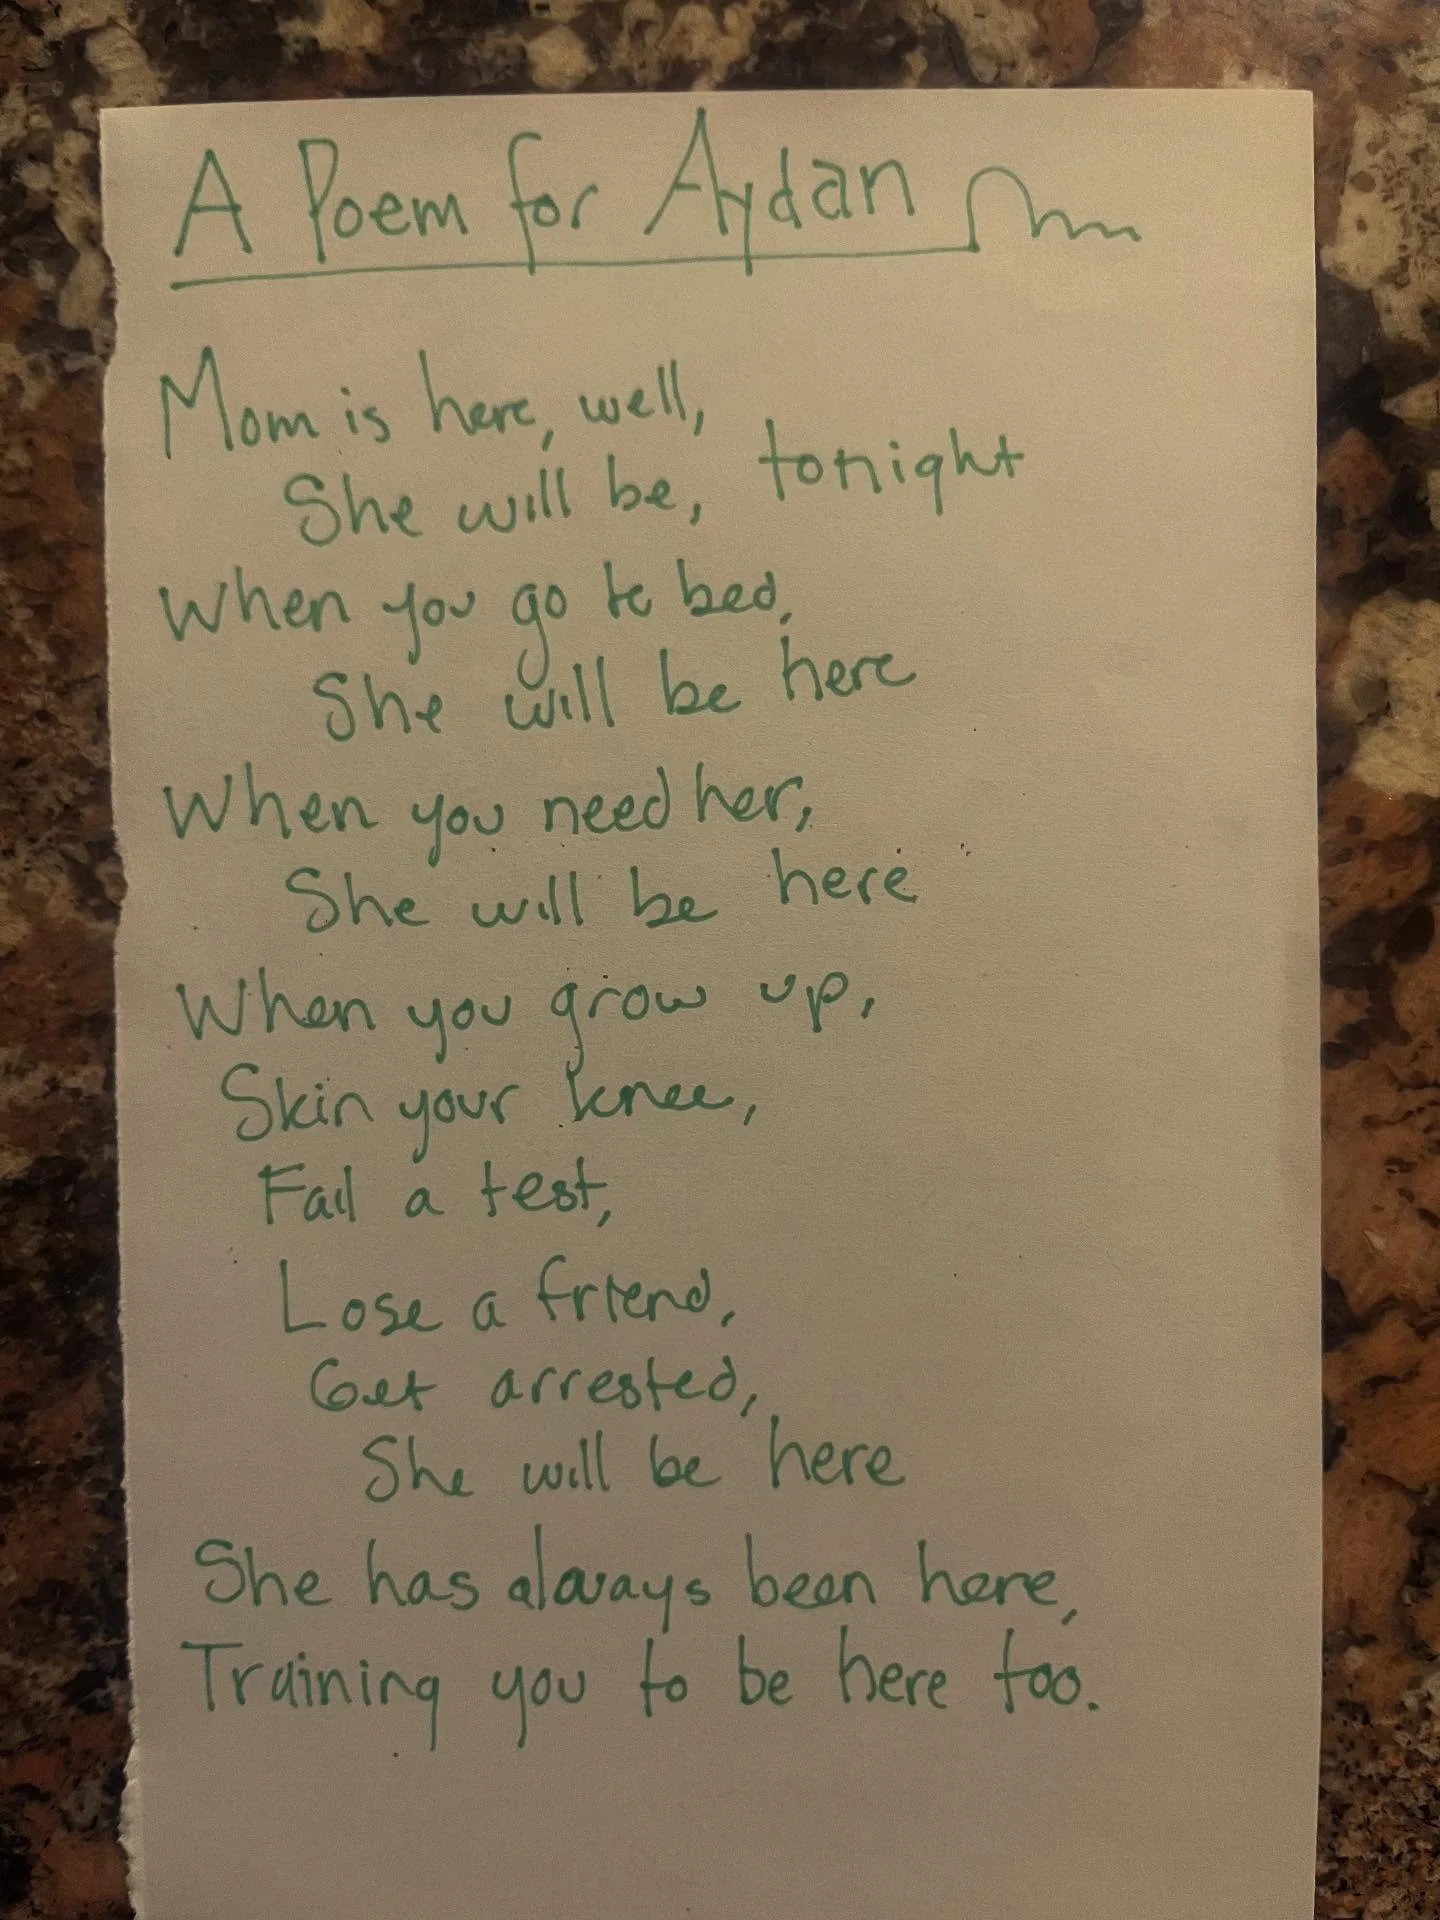 A Poem for Aydan
Mom is here, well,
She will be, tonight
When you go to bed,
She will be here
When you need her,
She will be here
When you grow up,
Skin your knee,
Fail a test,
Lose a friend,
Get arrested,
She will be here
She has always been here,
Training you to be here too.